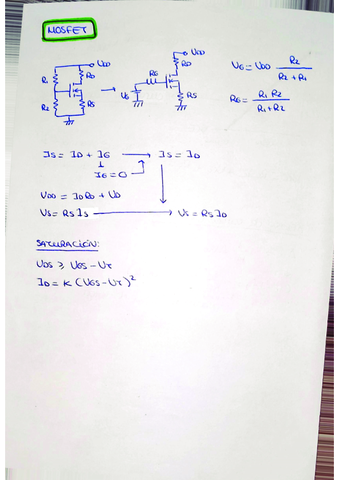 MOSFET
VDD
R1
RD
R2
RS
VDD
RD
RG
VG
RS
VG = VDD R2 / R2 + R1
RG = R1 R2 / R1 + R2
IS = ID + IG → IS = ID
IG = 0
VDD = IDRD + VD
VS = RS IS → VS = RS ID
SATURACIÓN:
VDS ≥ VGS - VT
ID = K (VGS - VT)²